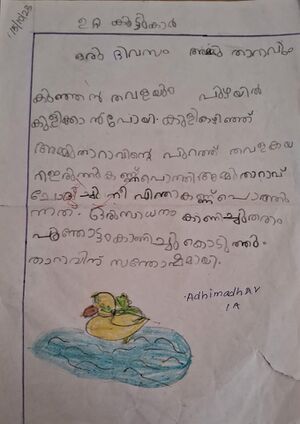 18/10/23
ഉറ്റ കൂട്ടുകാർ
ഒരു ദിവസം അമ്മു താറാവും
കുഞ്ഞൻ തവളയും പുഴയിൽ
കുളിക്കാൻപോയി. കുളികഴിഞ്ഞ്
അമ്മുതാറാവിന്റെ പുറത്ത് തവള
കണ്ണ്പൊത്തി അമ്മു താറാവ്
ചോദിച്ചു നീ എന്തിനാ കണ്ണ്പൊത്തു
ന്നത്. ഒരു സാധനം കാണിച്ചുതരാം
പൂഞ്ഞാട്ടം കാണിച്ചു കൊടുത്തു.
താറാവിന് സന്തോഷമായി.
Adhimadhav
1A